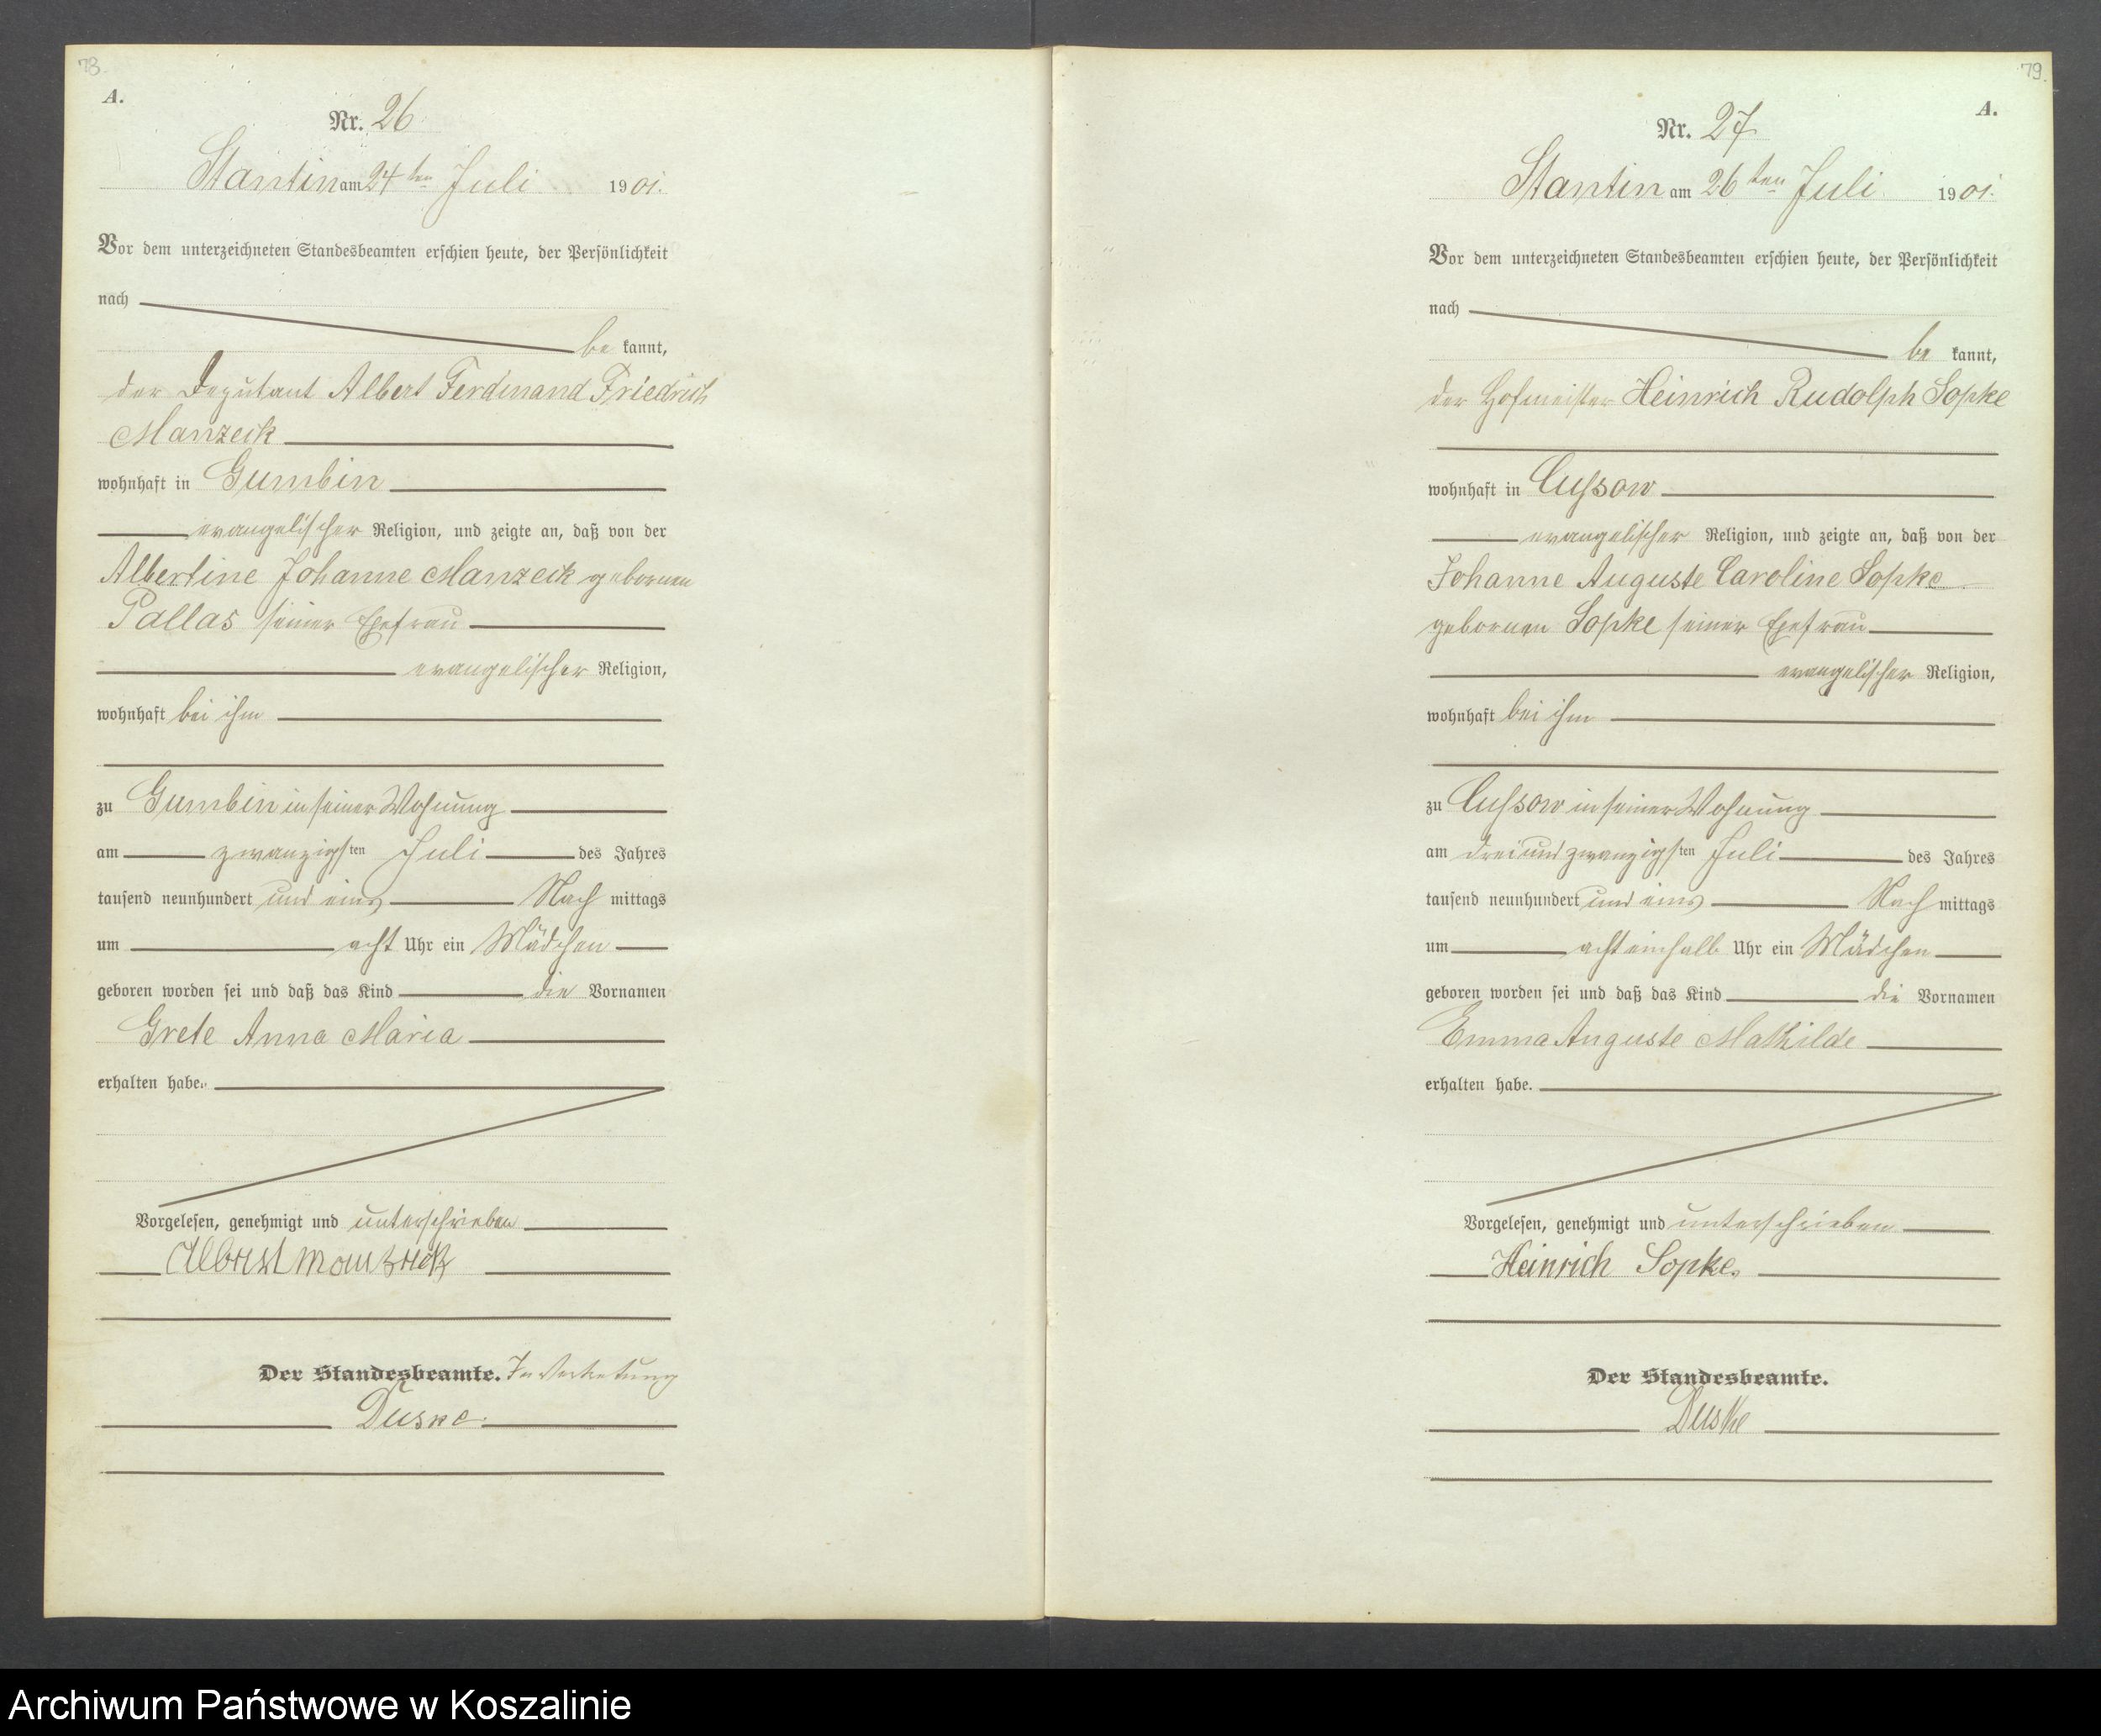 78.
A.
Nr. 26
Stantin am 24ten Juli 1901.
Vor dem unterzeichneten Standesbeamten erschien heute, der Persönlichkeit
nach
be kannt,
der Deputant Albert Ferdinand Friedrich
Manzeck
wohnhaft in Gumbin
evangelischer Religion, und zeigte an, daß von der
Albertine Johanne Manzeck gebornen
Pallas seiner Ehefrau
evangelischer Religion,
wohnhaft bei ihm
zu Gumbin in seiner Wohnung
am zwanzigsten Juli des Jahres
tausend neunhundert und eins Nach mittags
um acht Uhr ein Mädchen
geboren worden sei und daß das Kind die Vornamen
Grete Anna Maria
erhalten habe.
Vorgelesen, genehmigt und unterschrieben
Albert Manzeck
Der Standesbeamte. In Vertretung
Duske.
79.
A.
Nr. 27
Stantin am 26ten Juli 1901.
Vor dem unterzeichneten Standesbeamten erschien heute, der Persönlichkeit
nach
be kannt,
der Hofmeister Heinrich Rudolph Sopke
wohnhaft in Cussow
evangelischer Religion, und zeigte an, daß von der
Johanne Auguste Caroline Sopke
gebornen Sopke seiner Ehefrau
evangelischer Religion,
wohnhaft bei ihm
zu Cussow in seiner Wohnung
am dreiundzwanzigsten Juli des Jahres
tausend neunhundert und eins Nach mittags
um acht einhalb Uhr ein Mädchen
geboren worden sei und daß das Kind die Vornamen
Emma Auguste Mathilde
erhalten habe.
Vorgelesen, genehmigt und unterschrieben
Heinrich Sopke.
Der Standesbeamte.
Duske
Archiwum Państwowe w Koszalinie